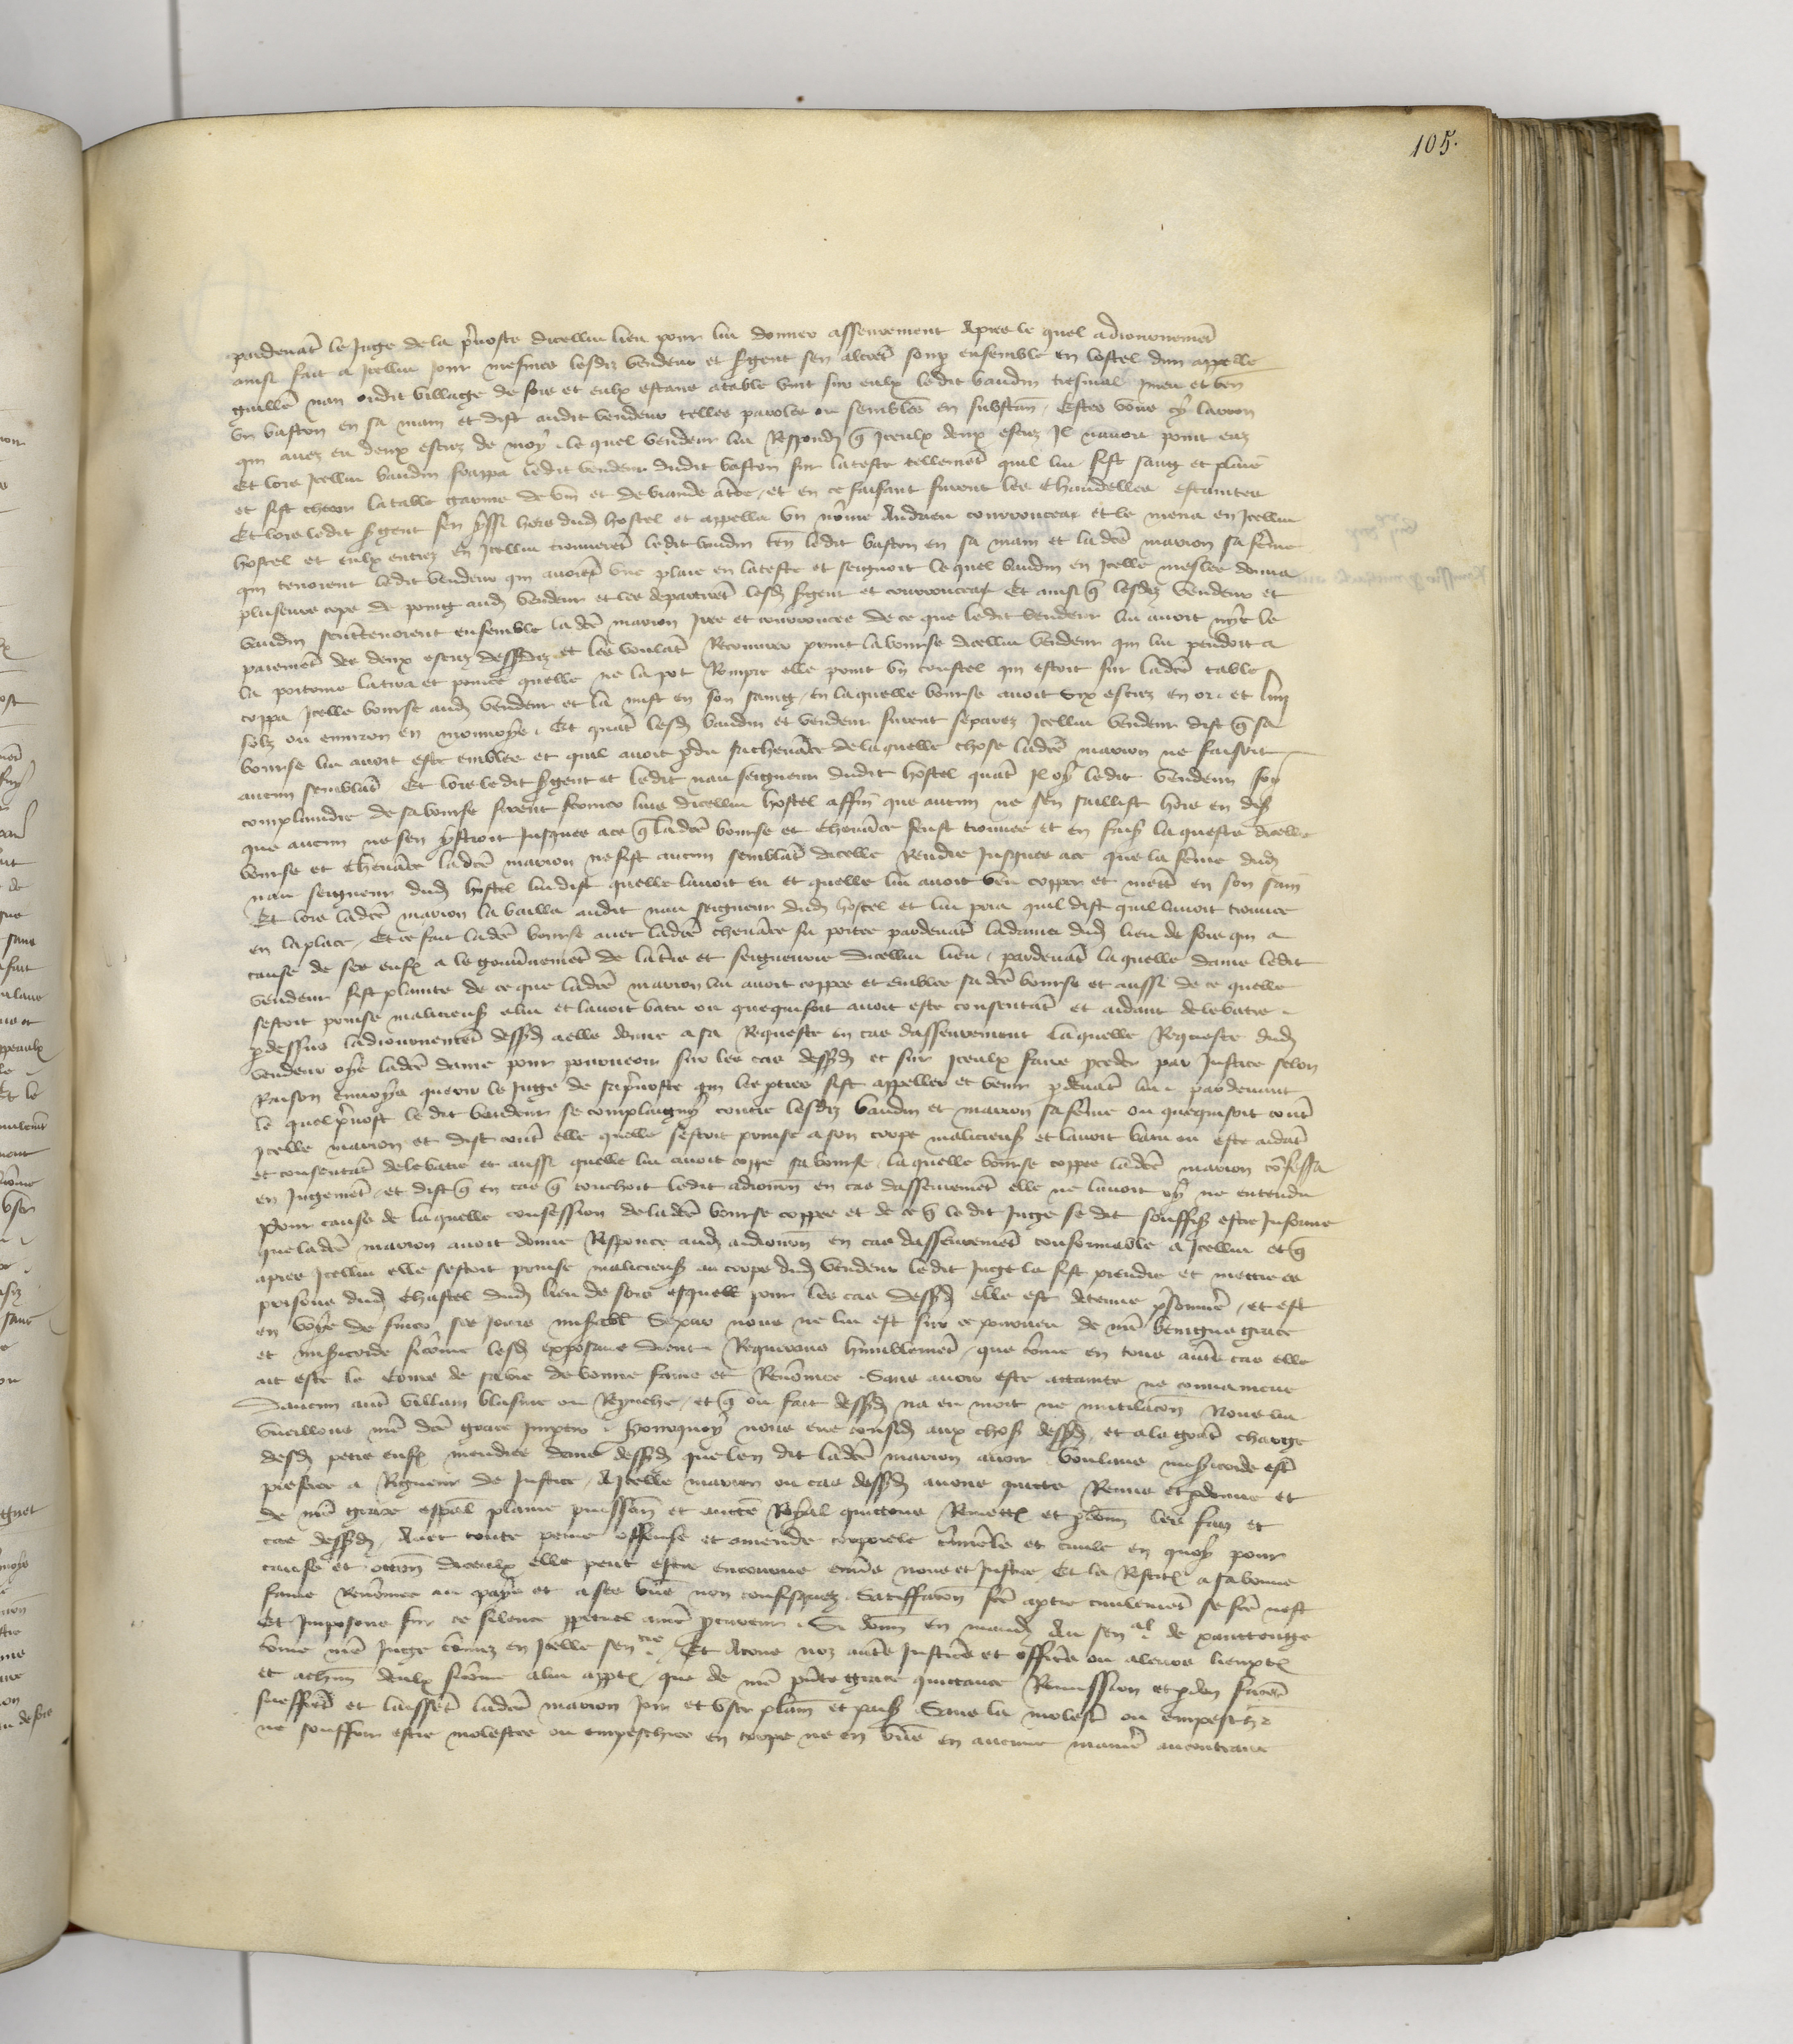 105.
pardevat le Juge de la pvoste dicellui lieu pour lui donner asseurement Apres le quel adiournemet
ainsi fait a Icellui jour mesmes lesdiz vendeur et sgent sen aleret soup ensemble en lostel dun appelle
guille nau oudit village de sore et eulx estans a table vint sur eulx ledit baudin tresmal meu et ten
un baston en sa main et dist audit vendeur telles paroles ou semblés en substan. Estes vous cy larron
qui avez eu deux escuz de moy. le quel vendeur lui Respondi q Iceulx deux escuz Il navoit point euz
Et lors Icellui baudin frappa ledit vendeur dudit baston sur la teste tellemet quil lui fist sang et plaie
et fist cheoir la table garnie de vin et de viande a tre, et en ce faisant furent les chandelles estaintes
Et lors ledit sgent sen yssi hors dud hostel et appella un nome Andrieu et le mena en Icellui
hostel et eulx entrez en Icellui trouveret ledit baudin ten ledit baston en sa main et la dce marion sa feme
qui tenoient ledit vendeur qui avoit une plaie en la teste et seignoit lequel baudin en Icelle meslee donna
pluseurs cops de poing aud vendeur et les departiret lesd sgent et Et ainsi q lesdiz vendeur et
baudin sentretenoient ensemble la dce marion Iree et courroucee de ce que ledit vendeur lui avoit nye le
paiemet des deux escuz dessusdiz et les voulat Recouvrer print la bourse dicellui vendeur qui lui pendoit a
la poitrine la tira et pource quelle ne la pot Rompre elle print un coustel qui estoit sur la dce table
coppa Icelle bourse aud vendeur et la mist en son saing, en laquelle bourse avoit six escuz en or et
solz ou environ en monnoye. Et quat lesd baudin et vendeur furent separez Icellui vendeur dist q sa
bourse lui avoit este emblee et quil avoit pdu sa chevance de laquelle chose la dce marion ne faisoit
aucun semblat Et lors ledit sgent et ledit nau seigneur dudit hostel quat Il oy ledit vendeur soy
complaindre de sa bourse firent fermer luis dicellui hostel affin que aucun ne sen saillist hors en dis
que aucun ne sen ystroit Jusques a ce q la dce bourse et chevance feust trouvee et en fais la queste dicelle
bourse et chevance la dce marion ne fist aucun semblat dicelle Rendre Jusques a ce que la feme dud
nau seigneur dud hostel lui dist quelle lavoit eu et quelle lui avoit veu copper et mett en son sain
Et lors la dce marion la bailla audit nau seigneur dud hostel et lui pria quil dist quil lavoit trouvee
en la place. Et ce fait la dce bourse avec la dce chevance fu portee pardevat la dame dud lieu de sore qui a
cause de ses enfs a le gouvnemet de la tre et seigneurie dicellui lieu, pardevat laquelle dame ledit
vendeur fist plainte de ce que la dce marion lui avoit coppee et emblee sa dce bourse et aussi de ce quelle
sestoit prinse malicieus a lui et lavoit batu ou quequesoit avoit este consentat et aidant de le batre
pdessus ladiournement dessusd a elle donne a sa Requeste en cas dasseurement la quelle Requeste dud
vendeur oye la dce dame pour pourveoir sur les cas dessusd et sur Iceulx faire pceder par Justice selon
Raison envoya querir le Juge de sa pvoste qui les pties fist appeller et venir pdevat lui. pardevant
le quel pvost le dit vendeur se complaigny contre lesdiz baudin et marion sa feme ou quequesoit cont
Icelle marion et dist cont elle quelle sestoit prinse a son corps malicieus et lavoit batu ou este aidat
et consentat de le batre et aussi quelle lui avoit coppe sa bourse, la quelle bourse coppee la dce marion cofessa
en Jugemet, et dist q en cas q touchoit ledit adiourn en cas dasseuremet elle ne lavoit oy ne entendu
Pour cause de laquelle confession de la dce bourse coppee et de ce q le dit Juge se dit souffis estre Informe
que la dce marion avoit donne Responce aud adiourn en cas dasseuremet conformable a Icellui et q
apres Icellui elle sestoit prinse malicieus au corps dud vendeur ledit Juge la fist prendre et mettre es
prisons dud chastel dud lieu de sore esquell pour les cas dessusd elle est detenue psonniere, et est
en voye de finer ses jours misabl Se par nous ne lui est sur ce pourveu de nre benigne grace
et misicorde sicome lesd exposans dient. Requerans humblemet, que come en tous autres cas elle
ait este le cours de sa vie de bonne fame et Renomee. Sans avoir este attainte ne convaincue
Daucun aut villain blasme ou Reprouche, et q ou fait dessusd na eu mort ne mutilacon Nous lui
vueillons nre dce grace Impartir. Pourquoy nous eue consid aux chos dessusd, et a la grat charge
desd petis enfs mendres dans dessusd que len dit la dce marion avoir voulans misicorde est
preferee a Rigueur de Justice. A Icelle marion ou cas dessusd avons quicte Remis et pdonne et
de nre grace espal plaine puissan et auctte Royal quictons Remetts et pdonn les faiz et
cas dessusd. Avec toute peine offense et amende corporele criminele et civile en quoy pour
cause et occon diceulx elle peut estre encourue envs nous et Justice Et la Restit a sa bonne
fame Renomee au pays et a ses biens non confisquez. Satisffacon fce a ptie civilemet se fce nest
Et Imposons sur ce silence ppetuel a nre pcureur. Si donn en mand Au senal de xanctonge
come nre Juge comis en Icelle sencie Et A tous noz autres Justiciers et officiers ou a leurs lieuxts
et a chun deulx sicome a lui apptt, que de nre pnte grace quictance Remission et pdon facet
sueffret et laisset la dce marion joir et user plain et paisib Sans la molest ou empesch
ne souffrir estre molestee ou empeschee en corps ne en biens en aucune maniere au contraire